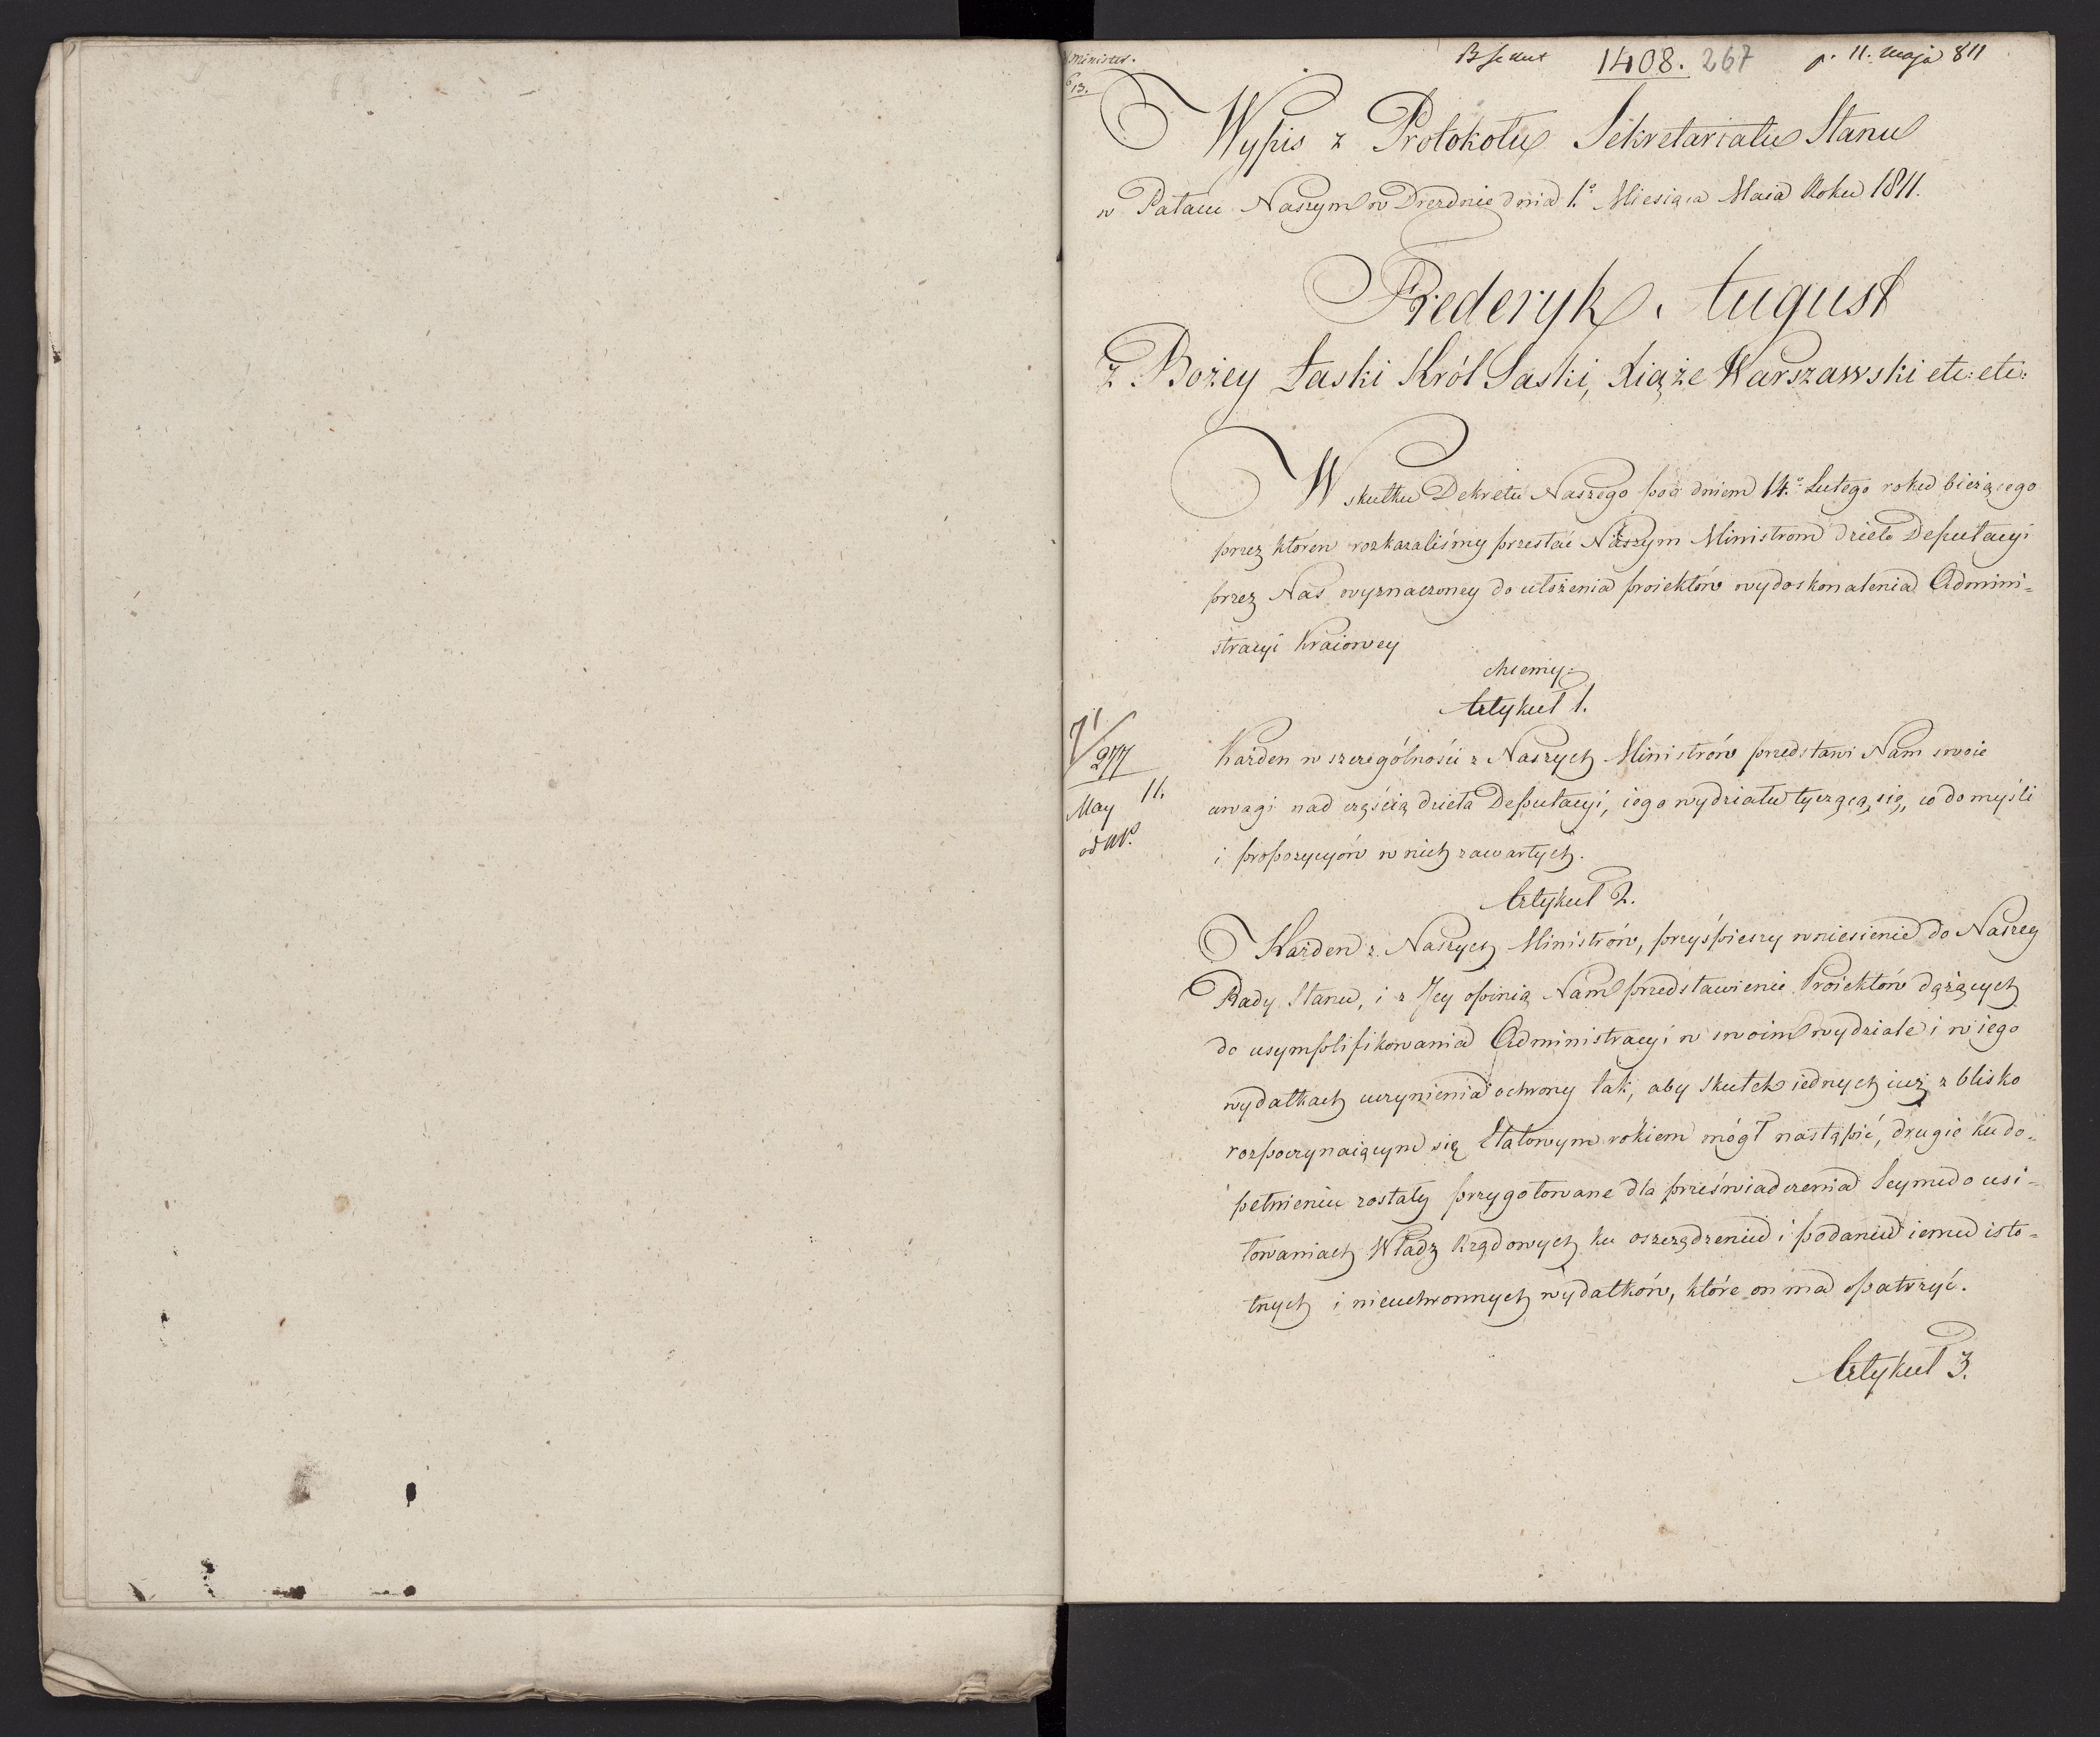 Minister.
13.
1408. 267
11. maja 811
Wypis z Protokołu Sekretariatu Stanu
w Pałacu Naszym w Dreznie dnia 1.º Miesiąca Maia Roku 1811.
Frederyk August
z Bożey Łaski Król Saski, Xiąże Warszawski etc: etc:
W skutku Dekretu Naszego pod dniem 14.º Lutego roku bieżącego
przez ktoren rozkazaliśmy przesłać Naszym Ministrom dzieło Deputacyi
przez Nas wyznaczoney do ułożenia proiektów wydoskonalenia Admini=
stracyi Kraiowey
chcemy:
Artykuł 1.
71
277
May 11.
Każden w szczególności z Naszych Ministrów przedstawi Nam swoie
uwagi nad częścią dzieła Deputacyi, iego wydziału tyczącą się, co do myśli
i propozycyów w nich zawartych.
Artykuł 2.
Każden z Naszych Ministrów, przyśpieszy wniesienie do Naszey
Rady Stanu, i z Jey opinią Nam przedstawienie Proiektów dążących
do usymplifikowania Administracyi w swoim wydziale i w iego
wydatkach uczynienia ochrony tak, aby skutek iednych iuż z blisko
rozpoczynaiącym się Etatowym rokiem mógł nastąpić, drugie ku do=
pełnieniu zostały przygotowane dla przeświadczenia Seymu o usi=
łowaniach Władz Rządowych ku oszczędzeniu i podaniu iemu isto=
tnych i nieuchronnych wydatków, które on ma opatrzyć.
Artykuł 3.